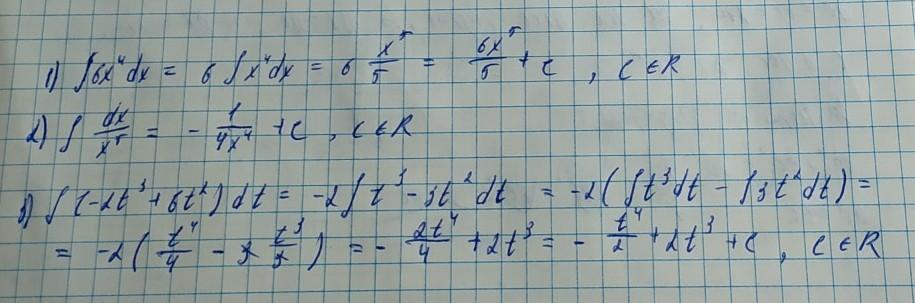 1) ∫6x⁴dx = 6 ∫x⁴dx = 6 x⁵/5 = 6x⁵/5 + c , c ∈ R
2) ∫ dx/x⁵ = - 1/4x⁴ + c , c ∈ R
3) ∫(-2t³ + 6t²)dt = -2∫t³ - 3t² dt = -2(∫t³dt - ∫3t²dt) =
= -2(t⁴/4 - 3 t³/3) = - 2t⁴/4 + 2t³ = - t⁴/2 + 2t³ + c , c ∈ R